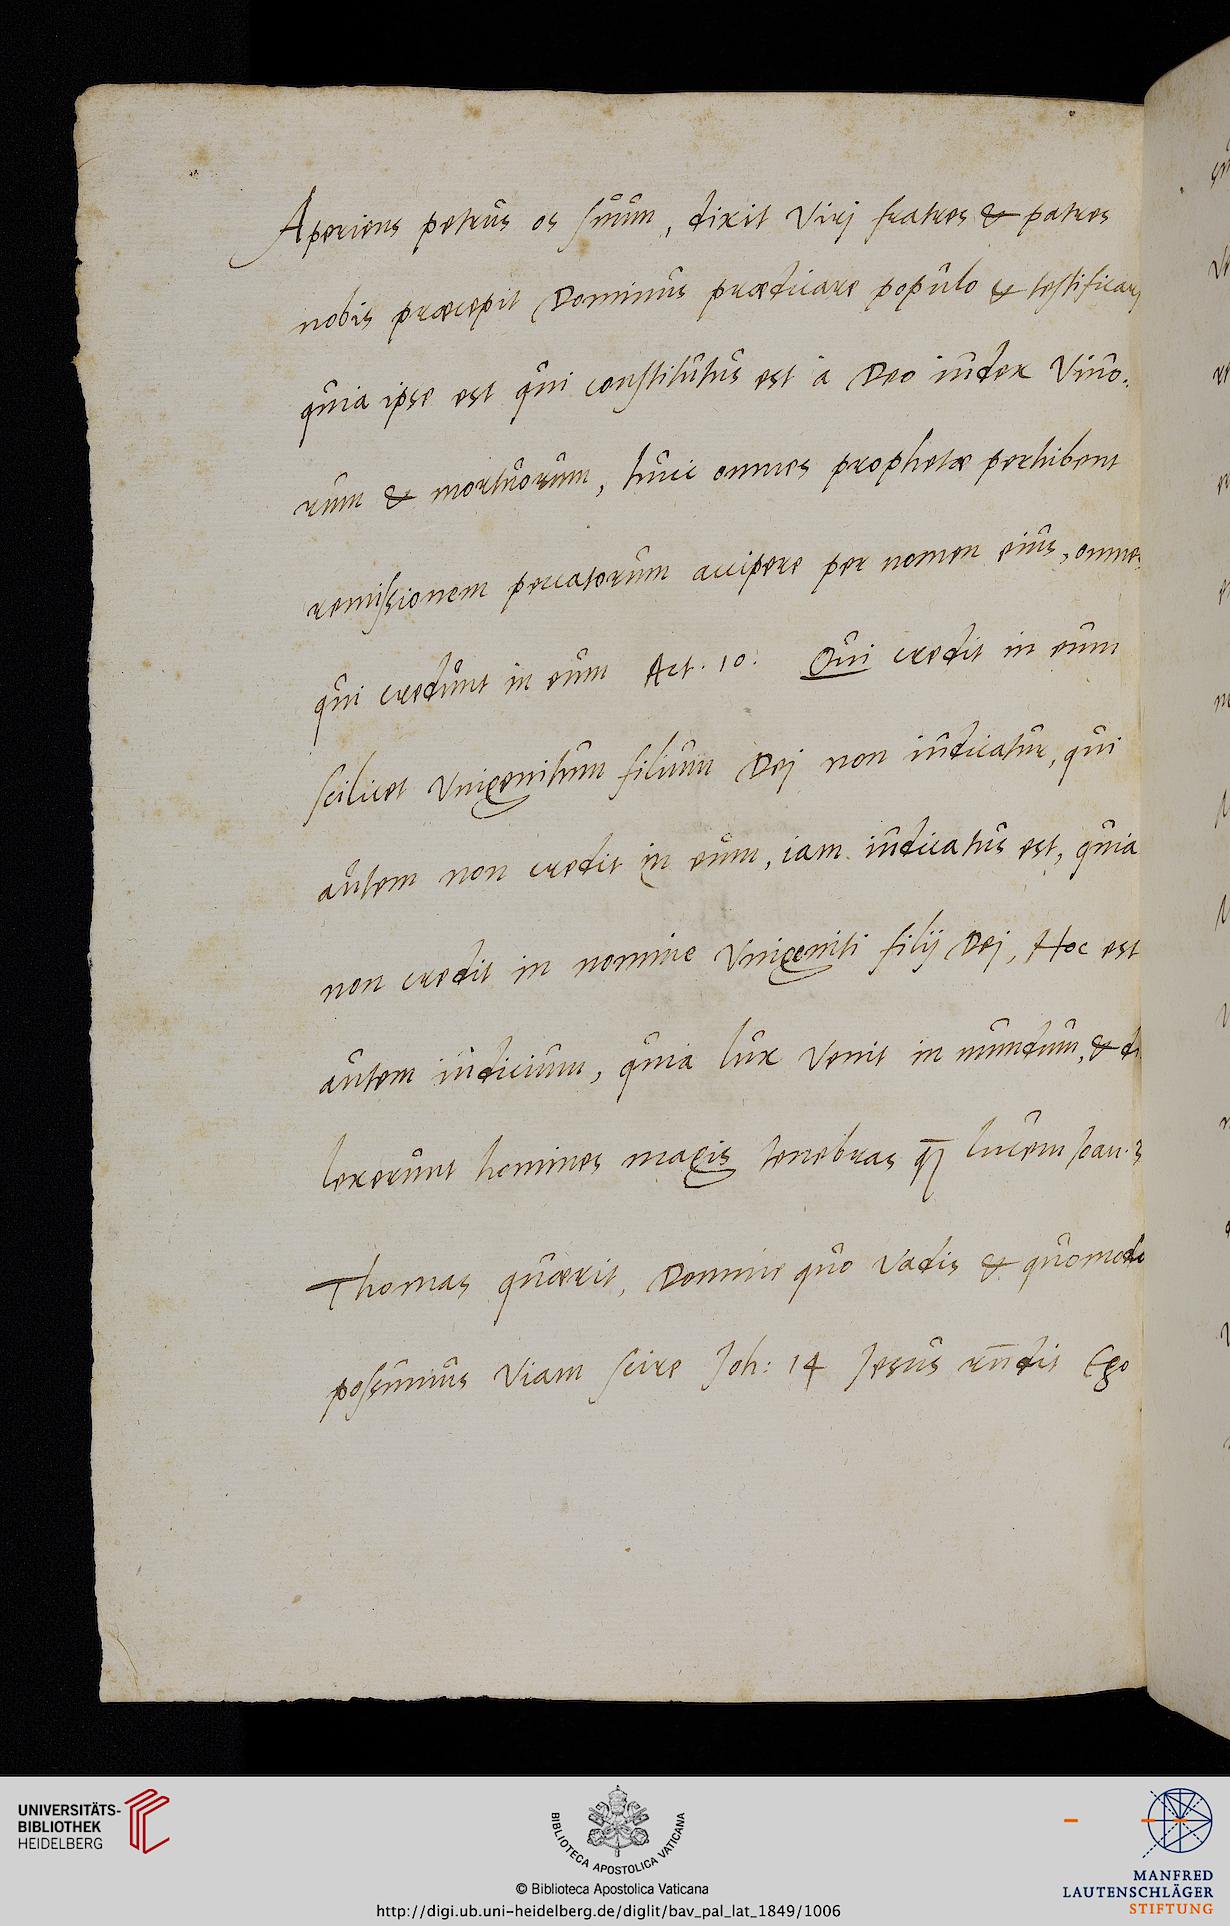 Aperiens petrus os suum, dixit Virj fratres & patres
nobis præcepit Dominus prædicare populo & testificarj
quia ipse est qui constitutus est à Deo iudex Viuo-
rum & mortuorum, huic omnes prophetæ perhibent
remissionem peccatorum accipere per nomen eius, omnes
qui credunt in eum Act. 10. Qui credit in eum
scilicet Vnigenitum filium Dej non iudicatur, qui
autem non credit in eum, iam iudicatus est, quia
non credit in nomine Vnigeniti filij Dej, Hoc est
autem iudicium, quia lux Venit in mundum, & di
lexerunt homines magis tenebras qꝫ lucem Joan. 3
Thomas quærit, Domine quo Vadis & quomodo
possumus Viam scire Joh: 14 Jesus rn̄dit Ego
UNIVERSITÄTS-
BIBLIOTHEK
HEIDELBERG
BIBLIOTECA APOSTOLICA VATICANA
© Biblioteca Apostolica Vaticana
http://digi.ub.uni-heidelberg.de/diglit/bav_pal_lat_1849/1006
MANFRED
LAUTENSCHLÄGER
STIFTUNG